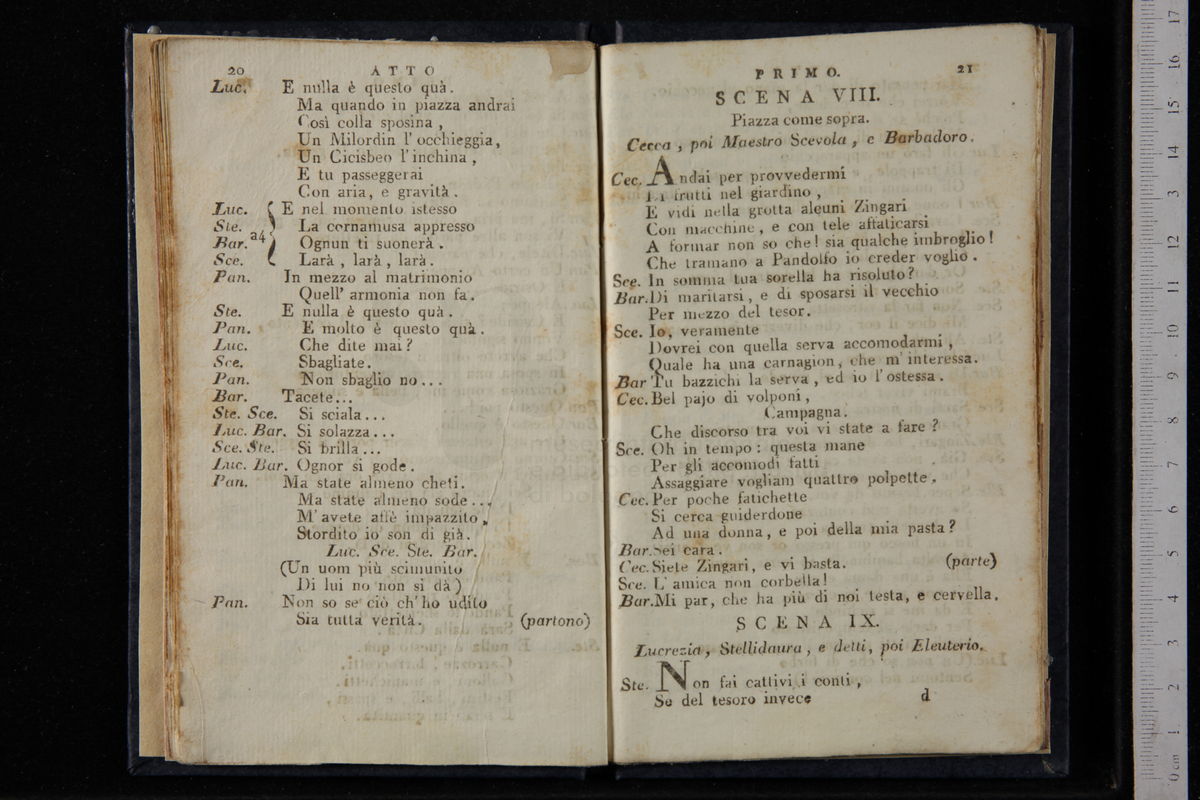 20 ATTO
Luc. E nulla è questo quà.
Ma quando in piazza andrai
Così colla sposina,
Un Milordin l'occhieggia,
Un Cicisbeo l'inchina,
E tu passeggerai
Con aria, e gravità.
Luc. E nel momento istesso
Ste. La cornamusa appresso
Bar. a4 Ognun ti suonerà.
Sce. Larà, larà, larà.
Pan. In mezzo al matrimonio
Quell' armonia non fa.
Ste. E nulla è questo quà.
Pan. E molto è questo quà.
Luc. Che dite mai?
Sce. Sbagliate.
Pan. Non sbaglio no...
Bar. Tacete...
Ste. Sce. Si sciala...
Luc. Bar. Si solazza...
Sce. Ste. Si brilla...
Luc. Bar. Ognor si gode.
Pan. Ma state almeno cheti.
Ma state almeno sode...
M'avete affè impazzito,
Stordito io son di già.
Luc. Sce. Ste. Bar.
(Un uom più scimunito
Di lui no non si dà)
Pan. Non so se ciò ch'ho udito
Sia tutta verità. (partono)
PRIMO. 21
SCENA VIII.
Piazza come sopra.
Cecca, poi Maestro Scevola, e Barbadoro.
Cec. Andai per provvedermi
Di frutti nel giardino,
E vidi nella grotta alcuni Zingari
Con macchine, e con tele affaticarsi
A formar non so che! sia qualche imbroglio!
Che tramano a Pandolfo io creder voglio.
Sce. In somma tua sorella ha risoluto?
Bar. Di maritarsi, e di sposarsi il vecchio
Per mezzo del tesor.
Sce. Io, veramente
Dovrei con quella serva accomodarmi,
Quale ha una carnagion, che m'interessa.
Bar Tu bazzichi la serva, ed io l'ostessa.
Cec. Bel pajo di volponi,
Campagna.
Che discorso tra voi vi state a fare?
Sce. Oh in tempo: questa mane
Per gli accomodi fatti
Assaggiare vogliam quattro polpette.
Cec. Per poche fatichette
Si cerca guiderdone
Ad una donna, e poi della mia pasta?
Bar. Sei cara.
Cec. Siete Zingari, e vi basta. (parte)
Sce. L'amica non corbella!
Bar. Mi par, che ha più di noi testa, e cervella.
SCENA IX.
Lucrezia, Stellidaura, e detti, poi Eleuterio.
Ste. Non fai cattivi i conti,
Se del tesoro invece d